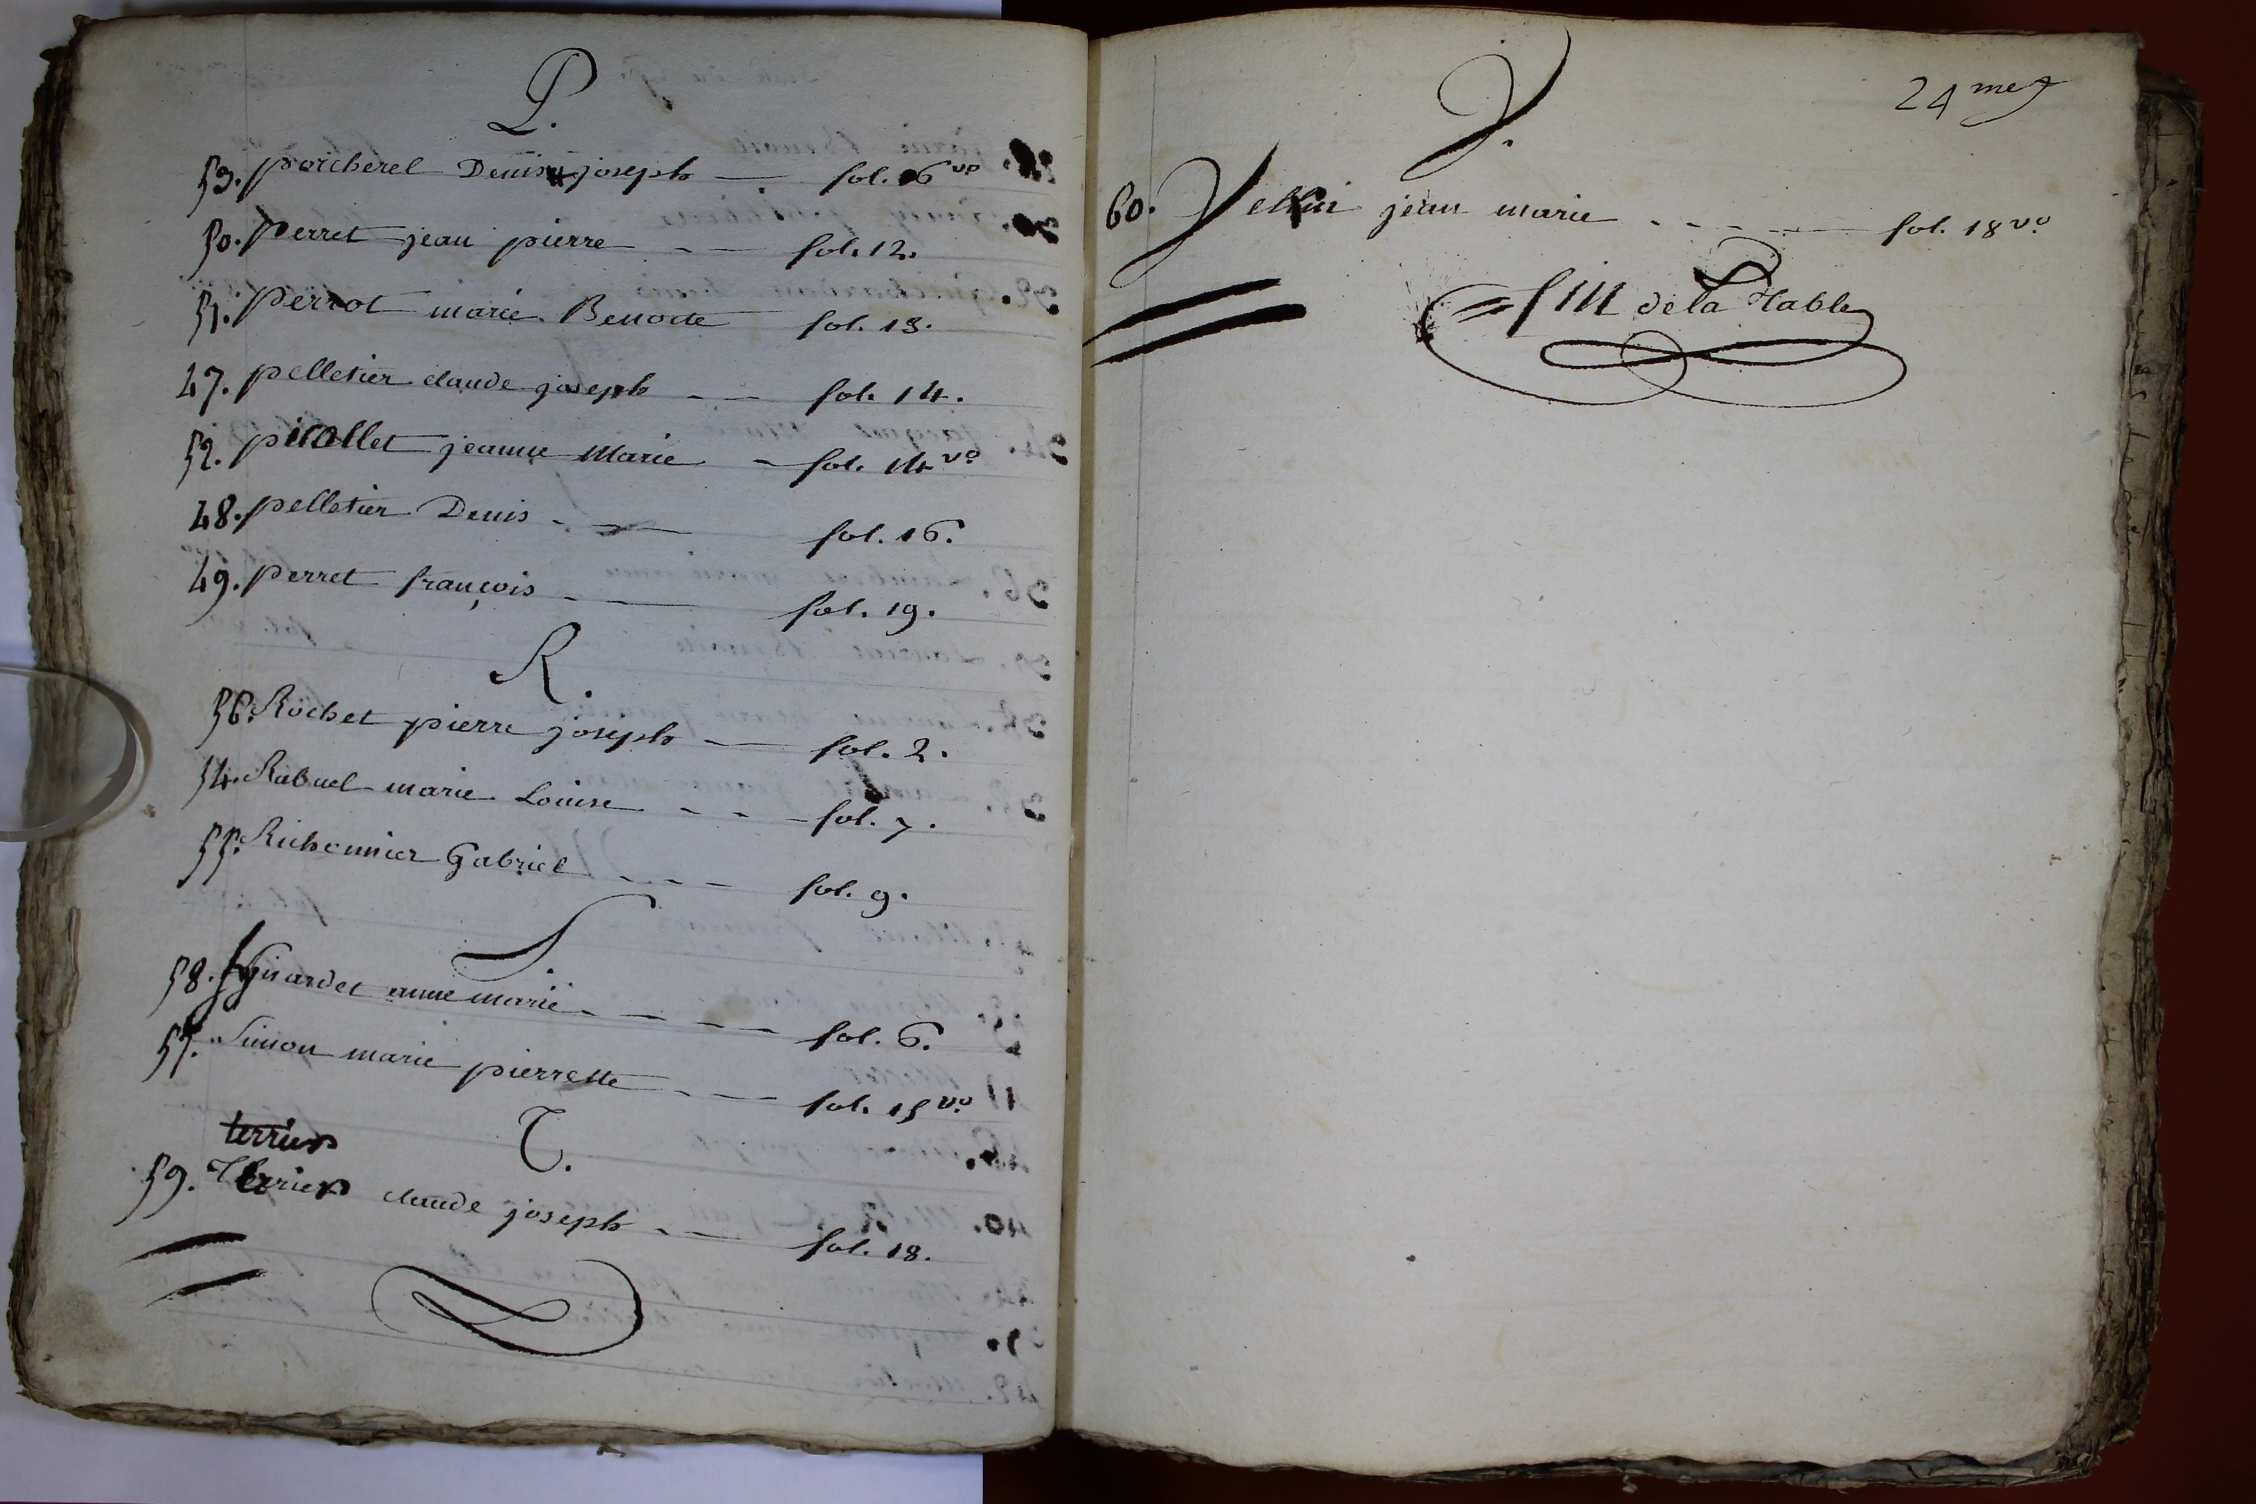 P.
53. porcherel Denis joseph fol. 6 vo
50. perret jean pierre fol. 12.
51. perrot marie Benoite fol. 13.
47. pelletier claude joseph fol. 14.
52. picollet jeanne Marie fol. 14 vo
48. pelletier Denis fol. 16.
49. perret françois fol. 19.
R.
56. Rochet pierre joseph fol. 2.
54. Rabuel marie Louise fol. 7.
55. Richonnier Gabriel fol. 9.
S.
58. anne marie fol. 6.
57. Simon marie pierrette fol. 15 vo
T.
terrier
59. Terrier claude joseph fol. 18.
24 me
V.
60. jean marie fol. 18 vo.
fin de la table